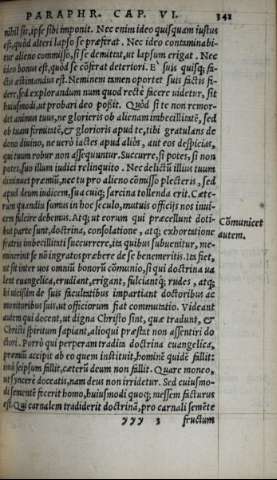 PARAPHR. CAP. VI.
341
nihil sit, ipse sibi imponit. Nec enim ideo quisquam iustus
est, quòd alteri lapso se præferat. Nec ideo contaminabi-
tur alieno commisso, si se demittat, ut lapsum erigat. Nec
ideo bonus est, quòd se cõferat deteriori. E suis quisq; fa-
ctis æstimandus est. Neminem tamen oportet suis factis fi-
dere, sed explorandum num quod rectè facere uidetur, sit
huiusmodi, ut probari deo possit. Quòd si te non remor-
det animus tuus, ne glorieris ob alienam imbecillitatẽ, sed
ob tuam firmitatẽ, & glorieris apud te, tibi gratulans de
dono diuino, ne uerò iactes apud alios, aut eos despicias,
qui tuum robur non assequuntur. Succurre, si potes, si non
potes, suo illum iudici relinquito. Nec delictũ illius tuum
diminuet præmiũ, nec tu pro alieno cõmisso plecteris, sed
apud deum iudicem, sua cuiq; sarcina tollenda erit. Cæte-
rum quandiu sumus in hoc seculo, mutuis officijs nos inui-
cem fulcire debemus. Atq; ut eorum qui præcellunt doti-
bus partes sunt, doctrina, consolatione, atq; exhortatione
fratris imbecillitati succurrere, ita quibus subuenitur, me-
minerint se nõ ingratos præbere de se benemeritis. Ita fiet,
ut sit inter uos omniũ bonorũ cõmunio, si qui doctrina ua
lent euangelica, erudiant, erigant, fulciantq; rudes, atq;
hi uicissim de suis facultatibus impartiant doctoribus ac
monitoribus suis, ut officiorum fiat commutatio. Videant
autem qui docent, ut digna Christo sint, quæ tradunt, &
Christi spiritum sapiant, alioqui præstat non assentiri do
ctori. Porrò qui perperam tradita doctrina euangelica,
præmiũ accipit ab eo quem instituit, hominẽ quidẽ fallit:
imò seipsum fallit, cæterũ deum non fallit. Quare moneo,
ut syncere doceatis, nam deus non irridetur. Sed cuiusmo-
di sementẽ fecerit homo, huiusmodi quoq; messem facturus
est. Qui carnalem tradiderit doctrinã, pro carnali semẽte
yyy 3 fructum
Cõmunicet
autem.